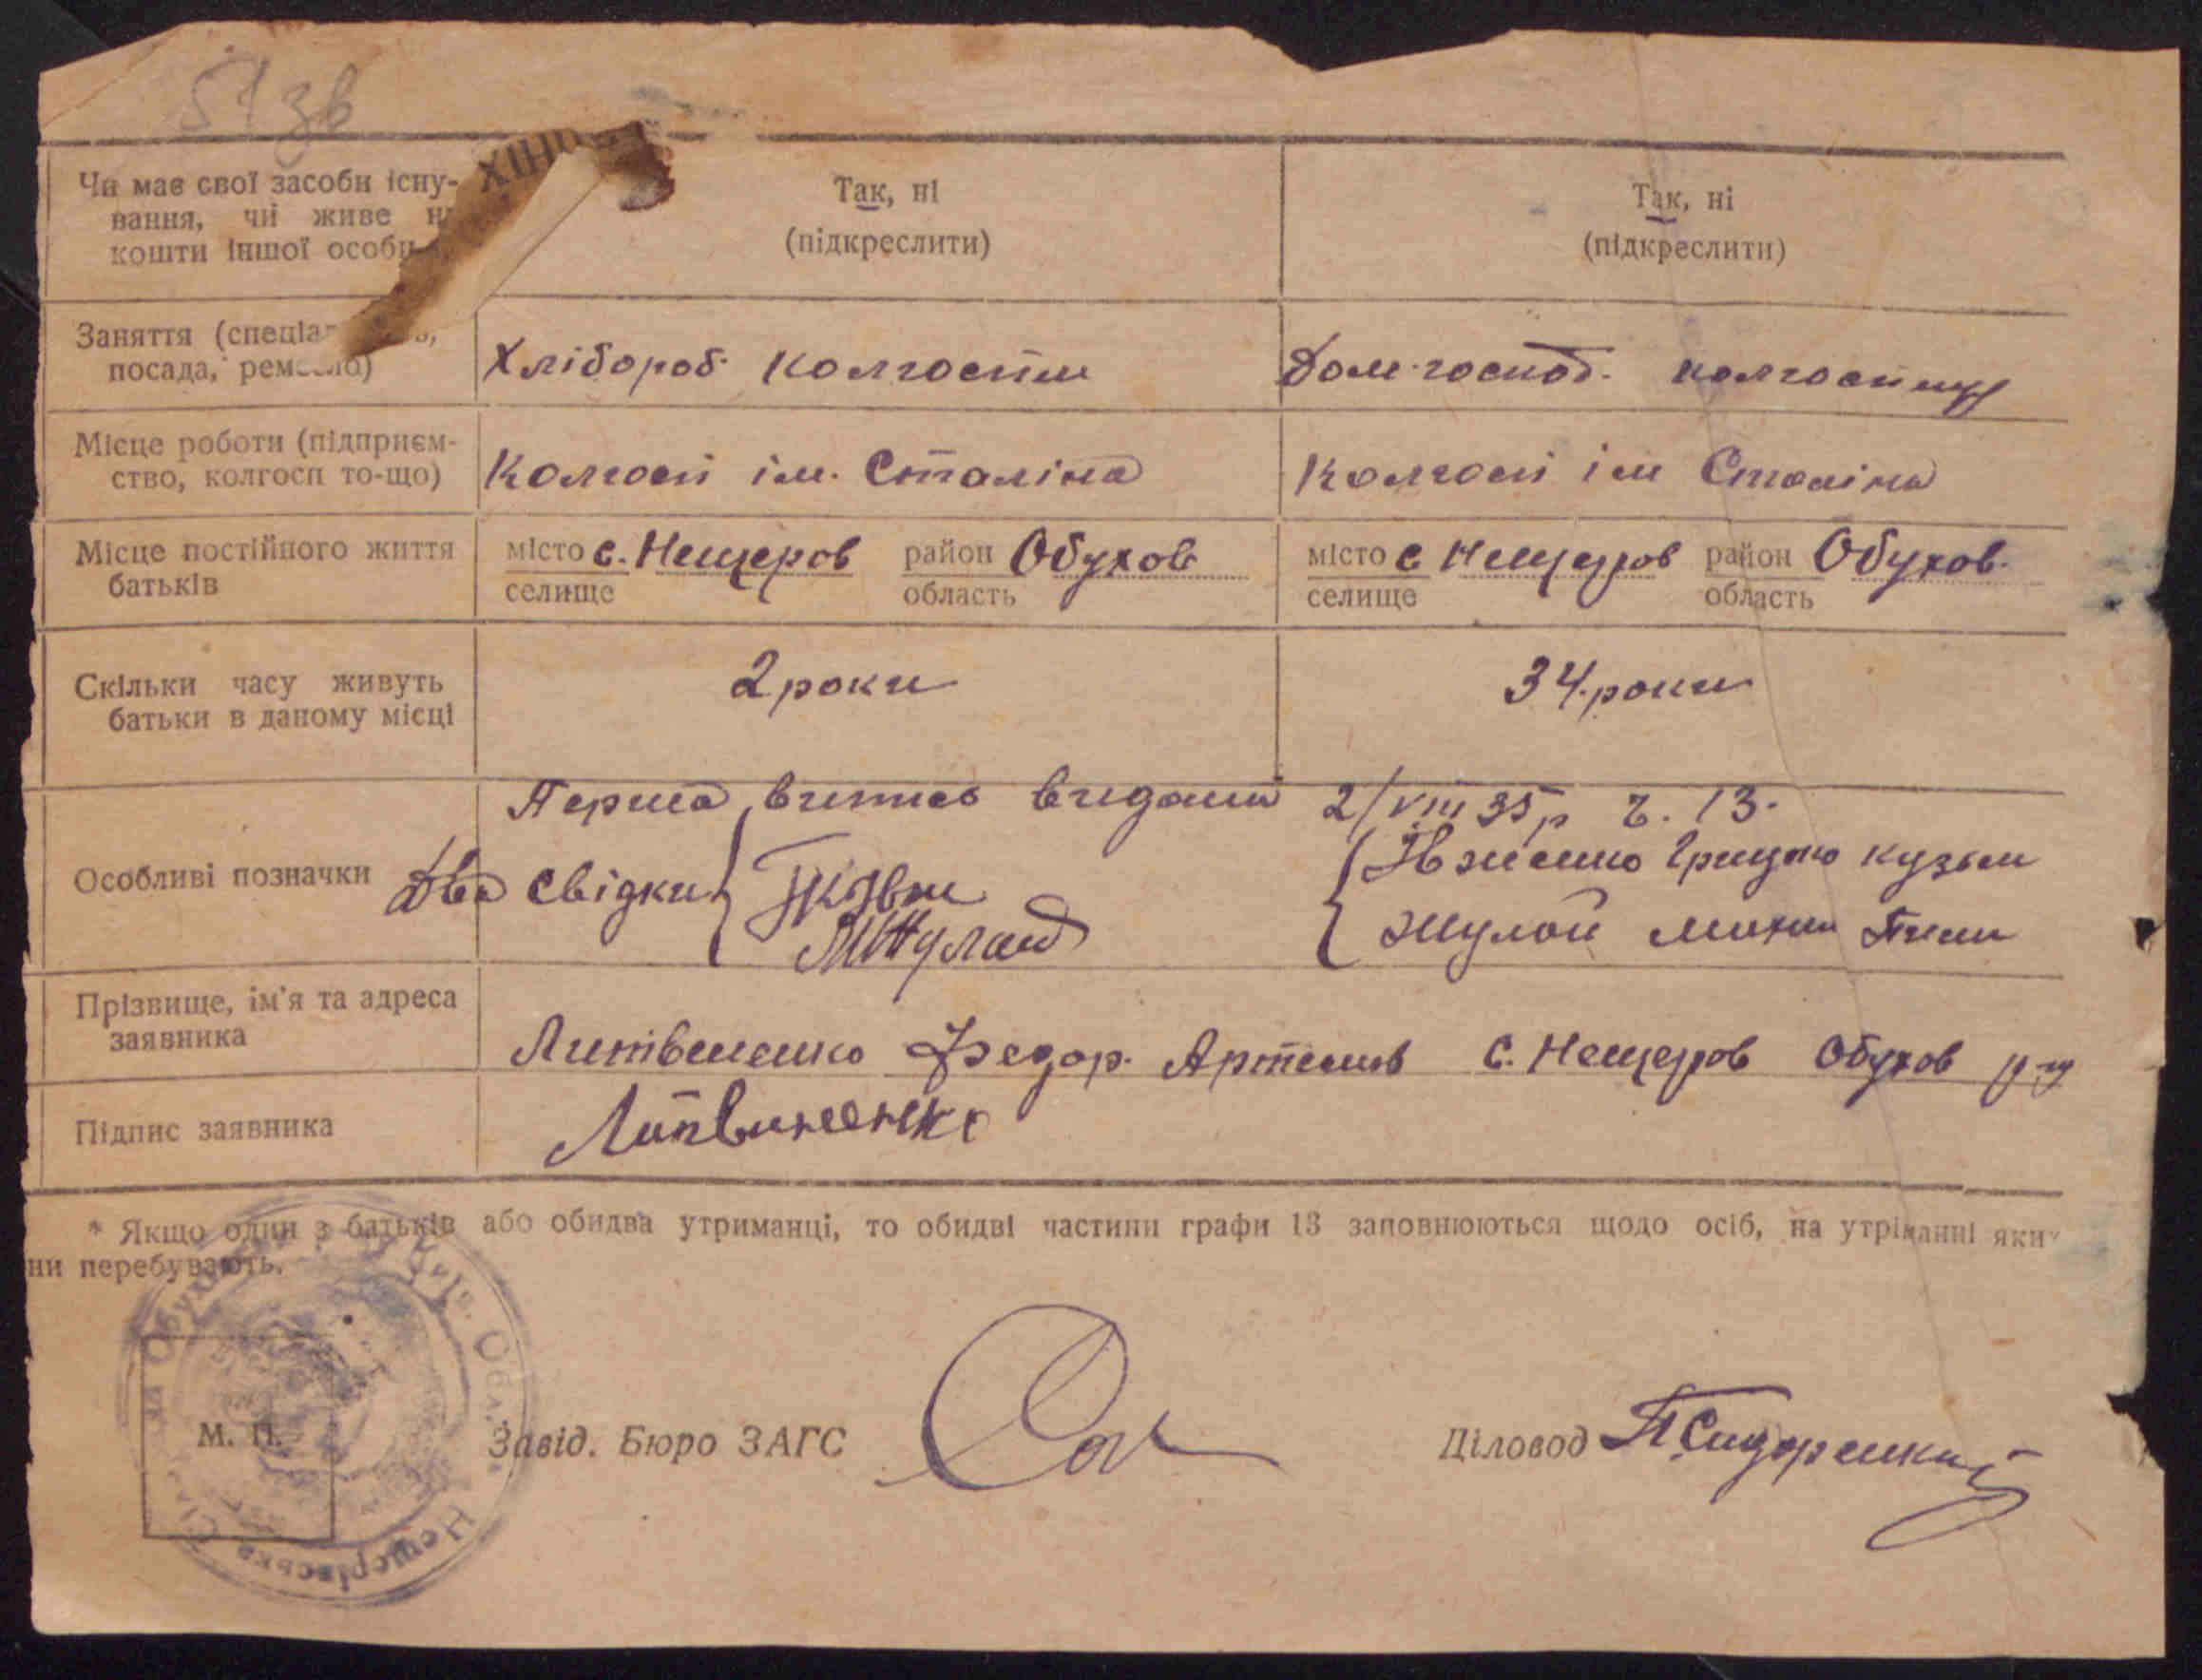 51 зв
Чи має свої засоби існу- Так, ні Так, ні
вання, чи живе
кошти іншої особи (підкреслити) (підкреслити)
Заняття
посада, Хлібороб. колгоспн Дом. господ. колгоспниця
Місце роботи (підприєм-
ство, колгосп то-що) Колгосп ім. Сталіна Колгосп ім Сталіна
Місце постійного життя місто с. Нещеров район Обухов місто с Нещеров район Обухов.
батьків селище область селище область
Скільки часу живуть 2 роки 34. роки
батьки в даному місці
Перша витяг видана 2/VIII 35 р ч. 13.
Особливі позначки Два свідки
Жулай
Прізвище, ім'я та адреса
заявника Литвиненко Федор. Артемов с. Нещеров Обухов р-ну
Підпис заявника Литвиненко
* Якщо один з батьків або обидва утриманці, то обидві частини графи 13 заповнюються щодо осіб, на утріманні яки
ни перебувають.
М. П. Завід. Бюро ЗАГС Діловод П Сидоренко
Нещерівська